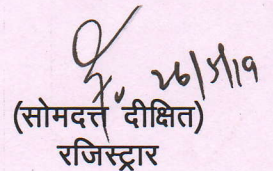 26/5/19
(सोमदत्त दीक्षित)
रजिस्ट्रार